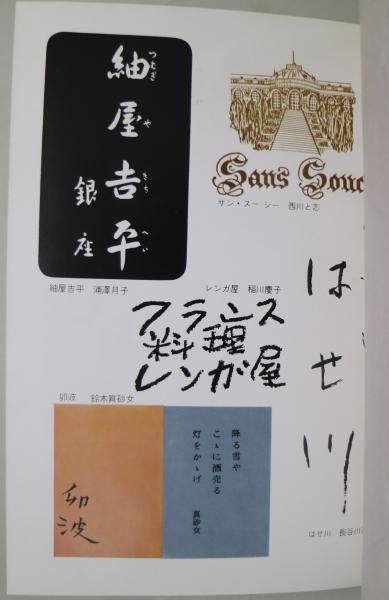 紬屋吉平
つむぎ や きち へい
銀座
Sans Souc
サン・スーシー 西川と志
紬屋吉平 浦澤月子
レンガ屋 稲川慶子
フランス
料理
レンガ屋
はせ川
はせ川 長谷川
卯波 鈴木真砂女
卯波
降る雪や
こゝに酒売る
灯をかゝげ
真砂女